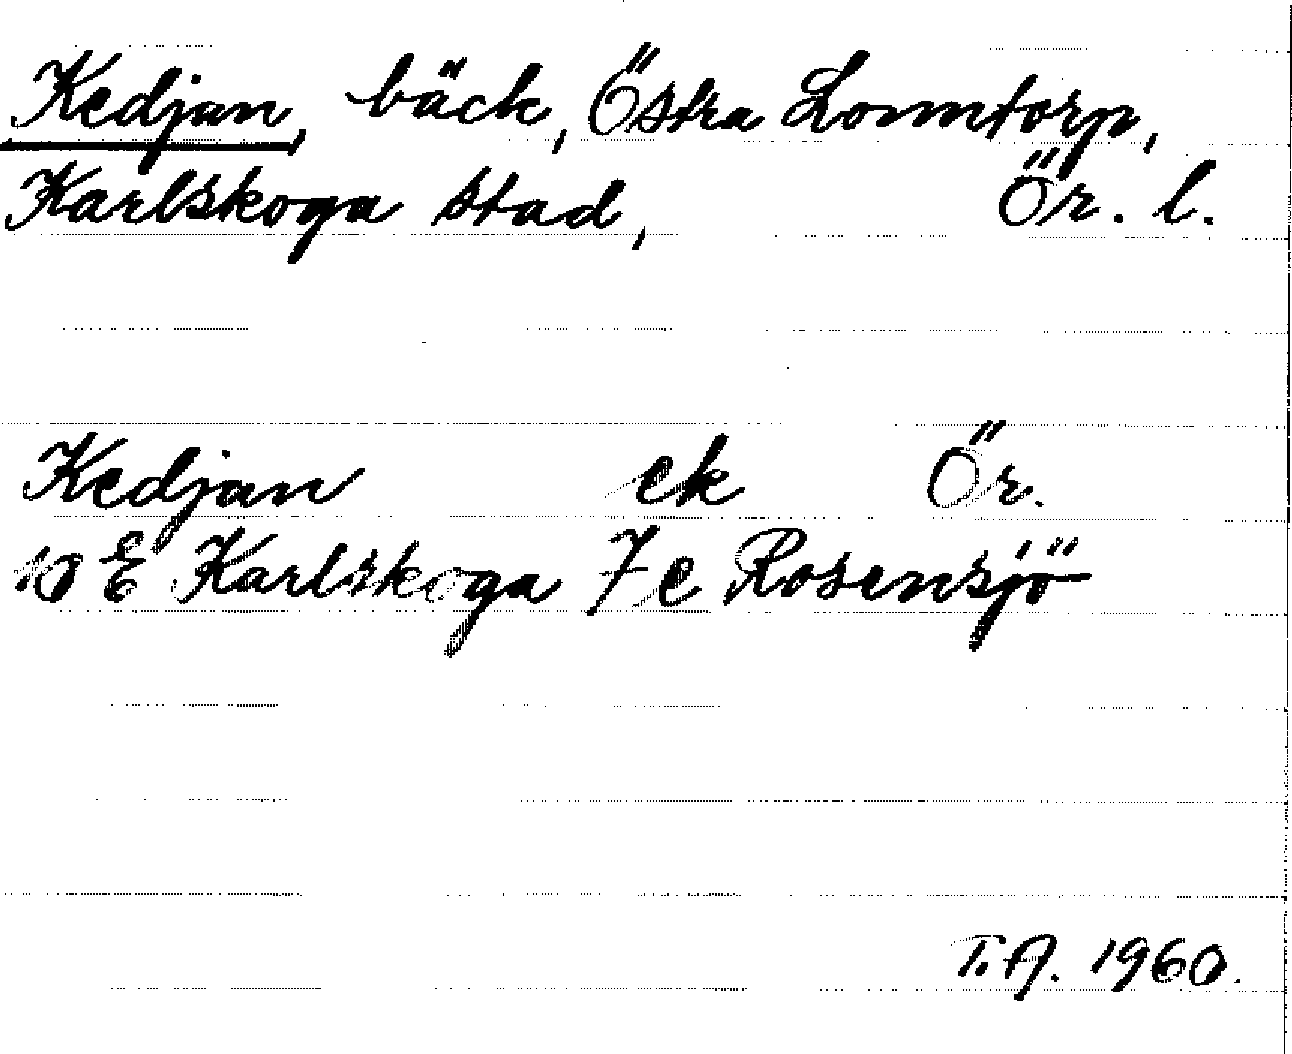 Kedjan, bäck, Östra Lonntorp,
Karlskoga stad, Ör. l.
Kedjan ek Ör.
10 E Karlskoga 7 e Rosensjö
T.A. 1960.